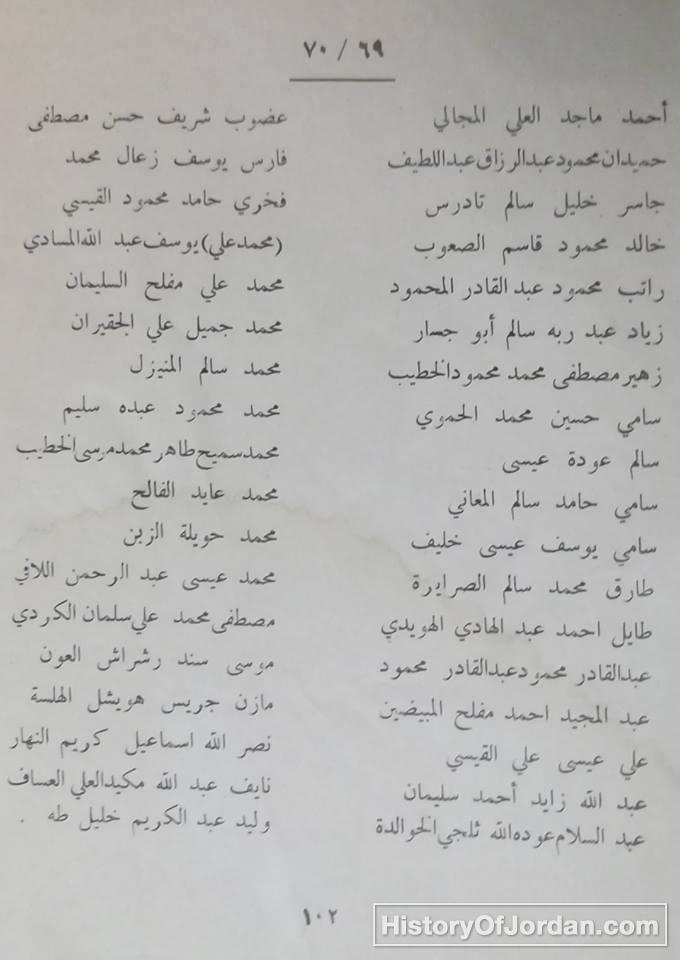 ٦٩ / ٧٠
أحمد ماجد العلي المجالي
حميدان محمود عبد الرزاق عبد اللطيف
جاسر خليل سالم تادرس
خالد محمود قاسم الصعوب
راتب محمود عبد القادر المحمود
زياد عبد ربه سالم أبو جسار
زهير مصطفى محمد محمود الخطيب
سامي حسين محمد الحموي
سالم عودة عيسى
سامي حامد سالم المعاني
سامي يوسف عيسى خليف
طارق محمد سالم الصرايرة
طايل احمد عبد الهادي الهويدي
عبد القادر محمود عبد القادر محمود
عبد المجيد احمد مفلح المبيضين
علي عيسى علي القيسي
عبد الله زايد أحمد سليمان
عبد السلام عوده الله ثلجي الخوالدة
عضوب شريف حسن مصطفى
فارس يوسف زعال محمد
فخري حامد محمود القيسي
(محمد علي) يوسف عبد الله المسادي
محمد علي مفلح السليمان
محمد جميل علي الجقيران
محمد سالم المنيزل
محمد محمود عبده سليم
محمد سميح طاهر محمد موسى الخطيب
محمد عايد الفالح
محمد حويلة الزبن
محمد عيسى عبد الرحمن اللافي
مصطفى محمد علي سلمان الكردي
موسى سند رشراش العون
مازن جريس هويشل الهلسة
نصر الله اسماعيل كريم النهار
نايف عبد الله مكيد العلي العساف
وليد عبد الكريم خليل طه .
١٠٢
HistoryOfJordan.com